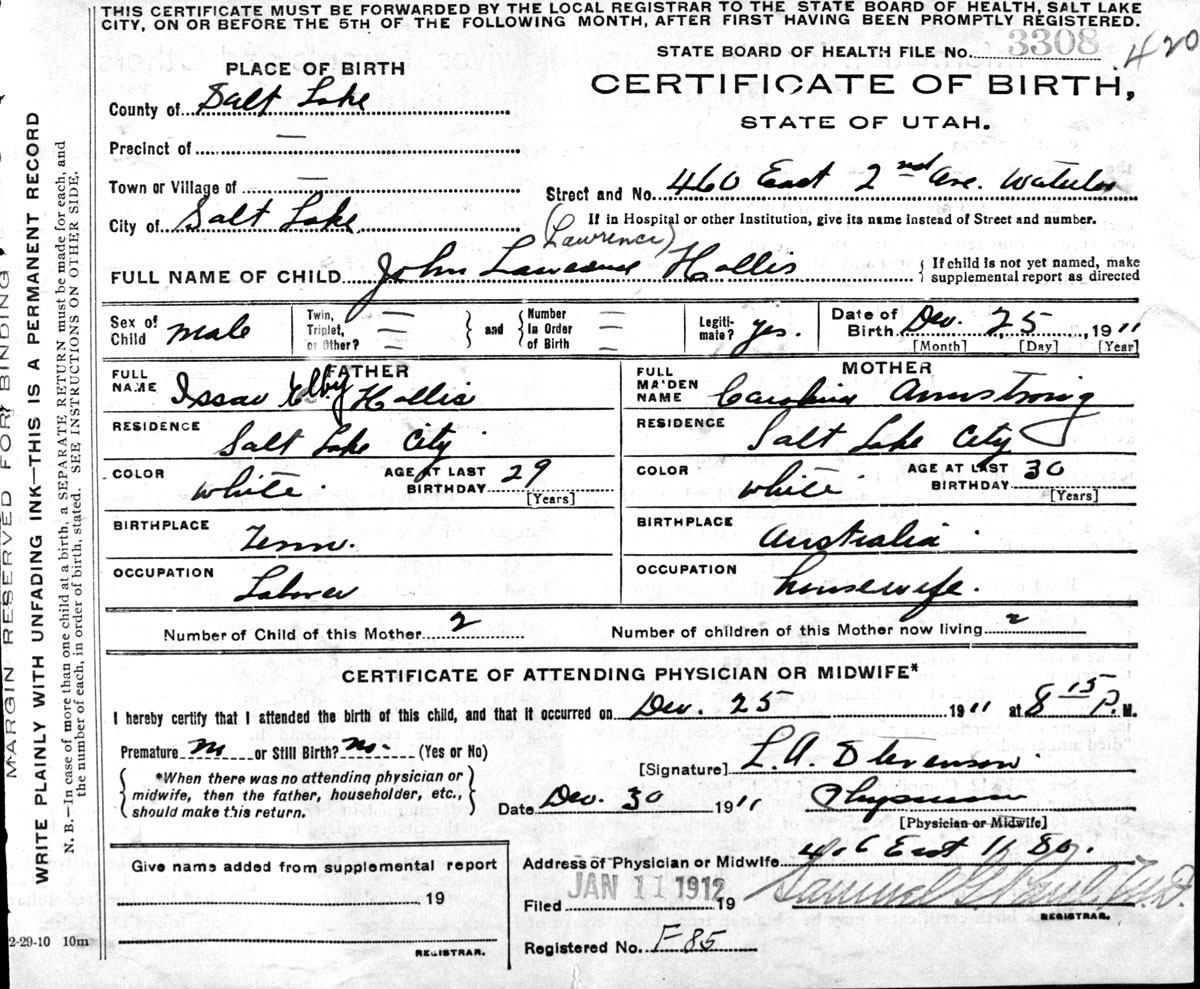 THIS CERTIFICATE MUST BE FORWARDED BY THE LOCAL REGISTRAR TO THE STATE BOARD OF HEALTH, SALT LAKE
CITY, ON OR BEFORE THE 5TH OF THE FOLLOWING MONTH, AFTER FIRST HAVING BEEN PROMPTLY REGISTERED.
STATE BOARD OF HEALTH FILE No. 3308 420
PLACE OF BIRTH
CERTIFICATE OF BIRTH,
STATE OF UTAH.
County of Salt Lake
Precinct of —
Town or Village of —
Street and No. 460 East 2nd Ave. Waterloo
City of Salt Lake
(If in Hospital or other Institution, give its name instead of Street and number.
(Lawrence)
FULL NAME OF CHILD John Lawrence Hollis
{ If child is not yet named, make
supplemental report as directed
Sex of Child male
Twin, Triplet, or Other? —
and
Number In Order of Birth —
Legiti-mate? yes.
Date of Birth Dec. 25, 1911
[Month] [Day] [Year]
FATHER
FULL NAME Issac Elby Hollis
RESIDENCE Salt Lake City
COLOR white.
AGE AT LAST BIRTHDAY 29
[Years]
BIRTHPLACE Tenn.
OCCUPATION Laborer
MOTHER
FULL MAIDEN NAME Carolina Armstrong
RESIDENCE Salt Lake City
COLOR white.
AGE AT LAST BIRTHDAY 30
[Years]
BIRTHPLACE Australia.
OCCUPATION housewife.
Number of Child of this Mother 2
Number of children of this Mother now living 2
CERTIFICATE OF ATTENDING PHYSICIAN OR MIDWIFE*
I hereby certify that I attended the birth of this child, and that it occurred on Dec. 25 1911 at 8 15 P. M.
Premature no or Still Birth? no. (Yes or No)
{ *When there was no attending physician or
midwife, then the father, householder, etc.,
should make this return. }
[Signature] L. A. Stevenson.
Date Dec. 30 1911 Physician
[Physician or Midwife]
Give name added from supplemental report
19
REGISTRAR.
Address of Physician or Midwife East 11 So.
Filed JAN 11 1912 19 Samuel G. M.D.
REGISTRAR.
Registered No. F 85
2-29-10 10m
MARGIN RESERVED FOR BINDING
WRITE PLAINLY WITH UNFADING INK—THIS IS A PERMANENT RECORD
N. B.—In case of more than one child at a birth, a SEPARATE RETURN must be made for each, and
the number of each, in order of birth, stated. SEE INSTRUCTIONS ON OTHER SIDE.